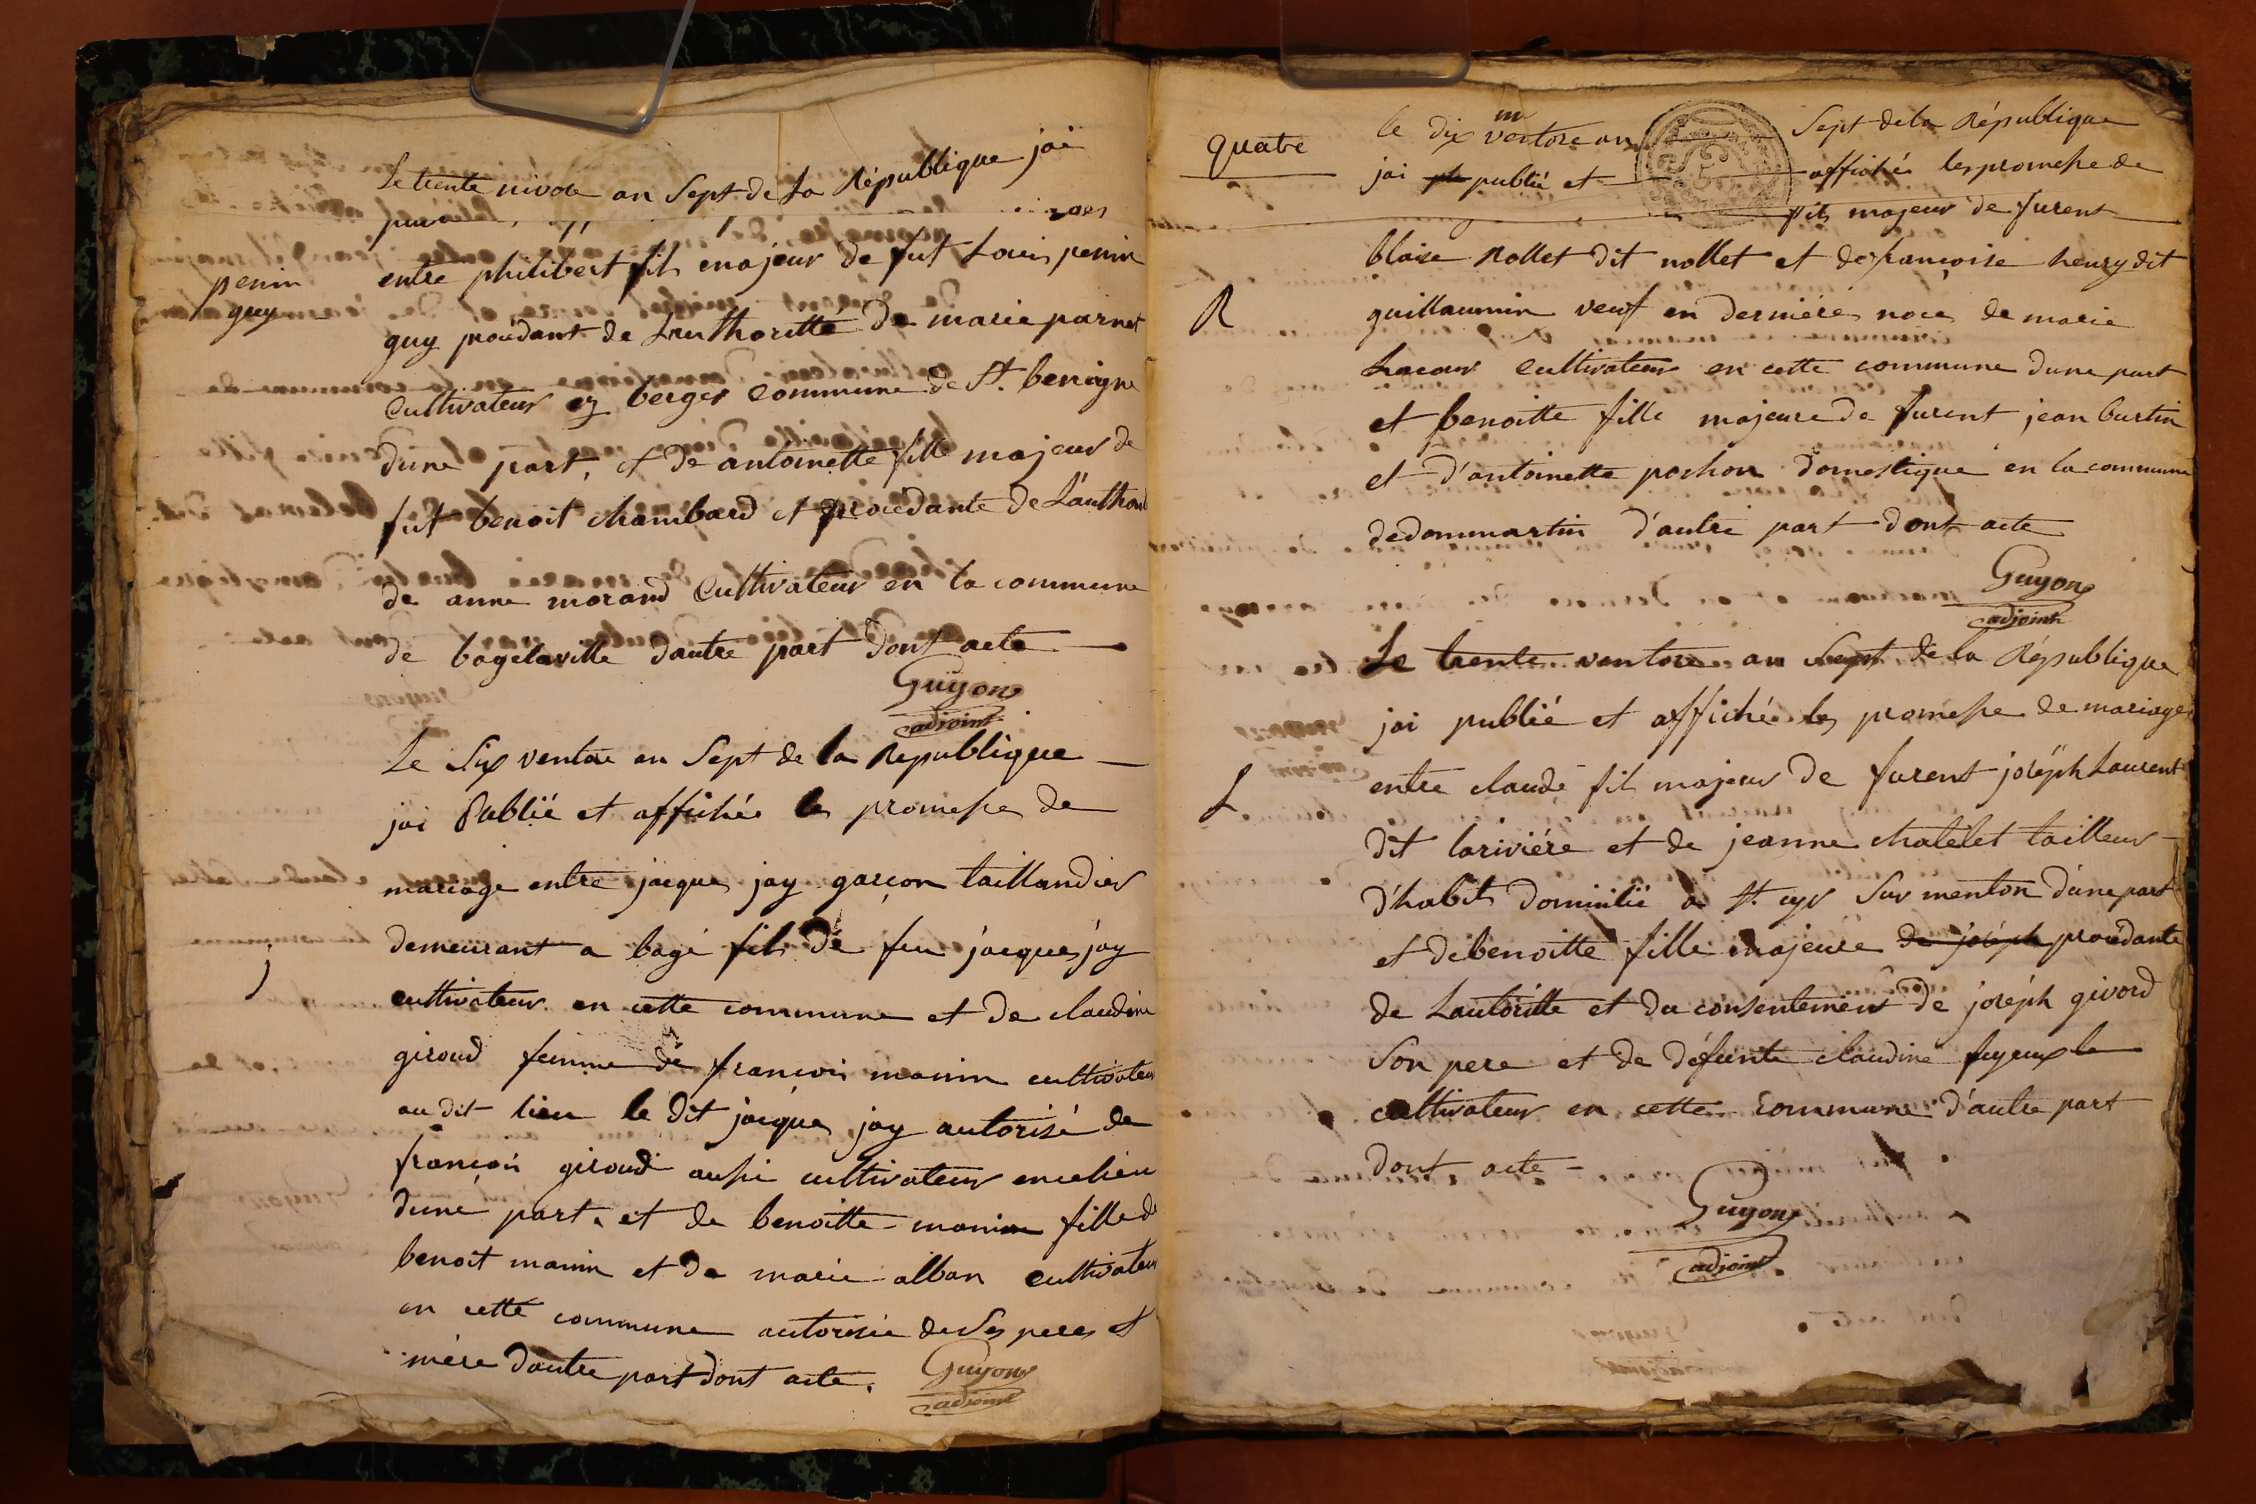 Le trente nivose an Sept de La République jai
entre philibert fils majeur de fut Louis penin
penin
guy
guy procédant de Lauthoritté de marie parnet
cultivateur ez berger commune de St. benigne
dune part, et de antoinette fille majeur de
fut benoit chambard et procédante de Lauthori
de anne morand Cultivateur en la commune
de bagelaville dautre part dont acte
Guyon
adjoint
Le Six ventose an Sept de la République
jai Publié et affichée les promesse de
mariage entre jacques jay garçon taillandier
demeurant a bagé fils de feu jacques jay
j
cultivateur en cette commune et de claudine
giroud femme de françois manin cultivateur
au dit lieu le dit jacques jay autorisé de
françois giroud aussi cultivateur en ce lieu
dune part. et de benoitte manin fille de
benoit manin et de marie alban cultivateur
en cette commune autorisée de Ses peres et
mère dautre part dont acte.
Guyon
adjoint
quatre
le dix ventose an Sept de la République
jai publié et affichée les promesse de
fils majeur de furent
blaise Rollet dit nollet et de françoise heury dit
R
guillaumin veuf en derniéres noces de marie
Lacour Cultivateur en cette commune dune part
et benoitte fille majeure de furent jean burtin
et d'antoinette pochon domestique en la commune
de dommartin d'autre part dont acte
Guyon
adjoint
Le trente ventose an Sept de la République
jai publié et affichée les promesse de mariage
entre claude fils majeur de furent joséph Laurent
L
dit lariviére et de jeanne chatelet tailleur
d'habits domicilié a St. cyr Sur menton dune part
et de benoitte fille majeure de joséph procédante
de Lautoritté et du consentement de joséph givord
Son pere et de défunte claudine fuyeux le
cultivateur en cette commune d'autre part
dont acte
Guyon
adjoint